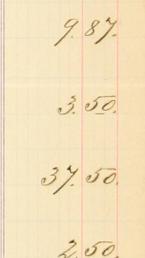 9.87.
3.50.
37.50.
2.50.